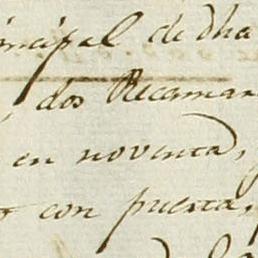 incipal de dha
, dos Recamar
en noventa,
con puerta,